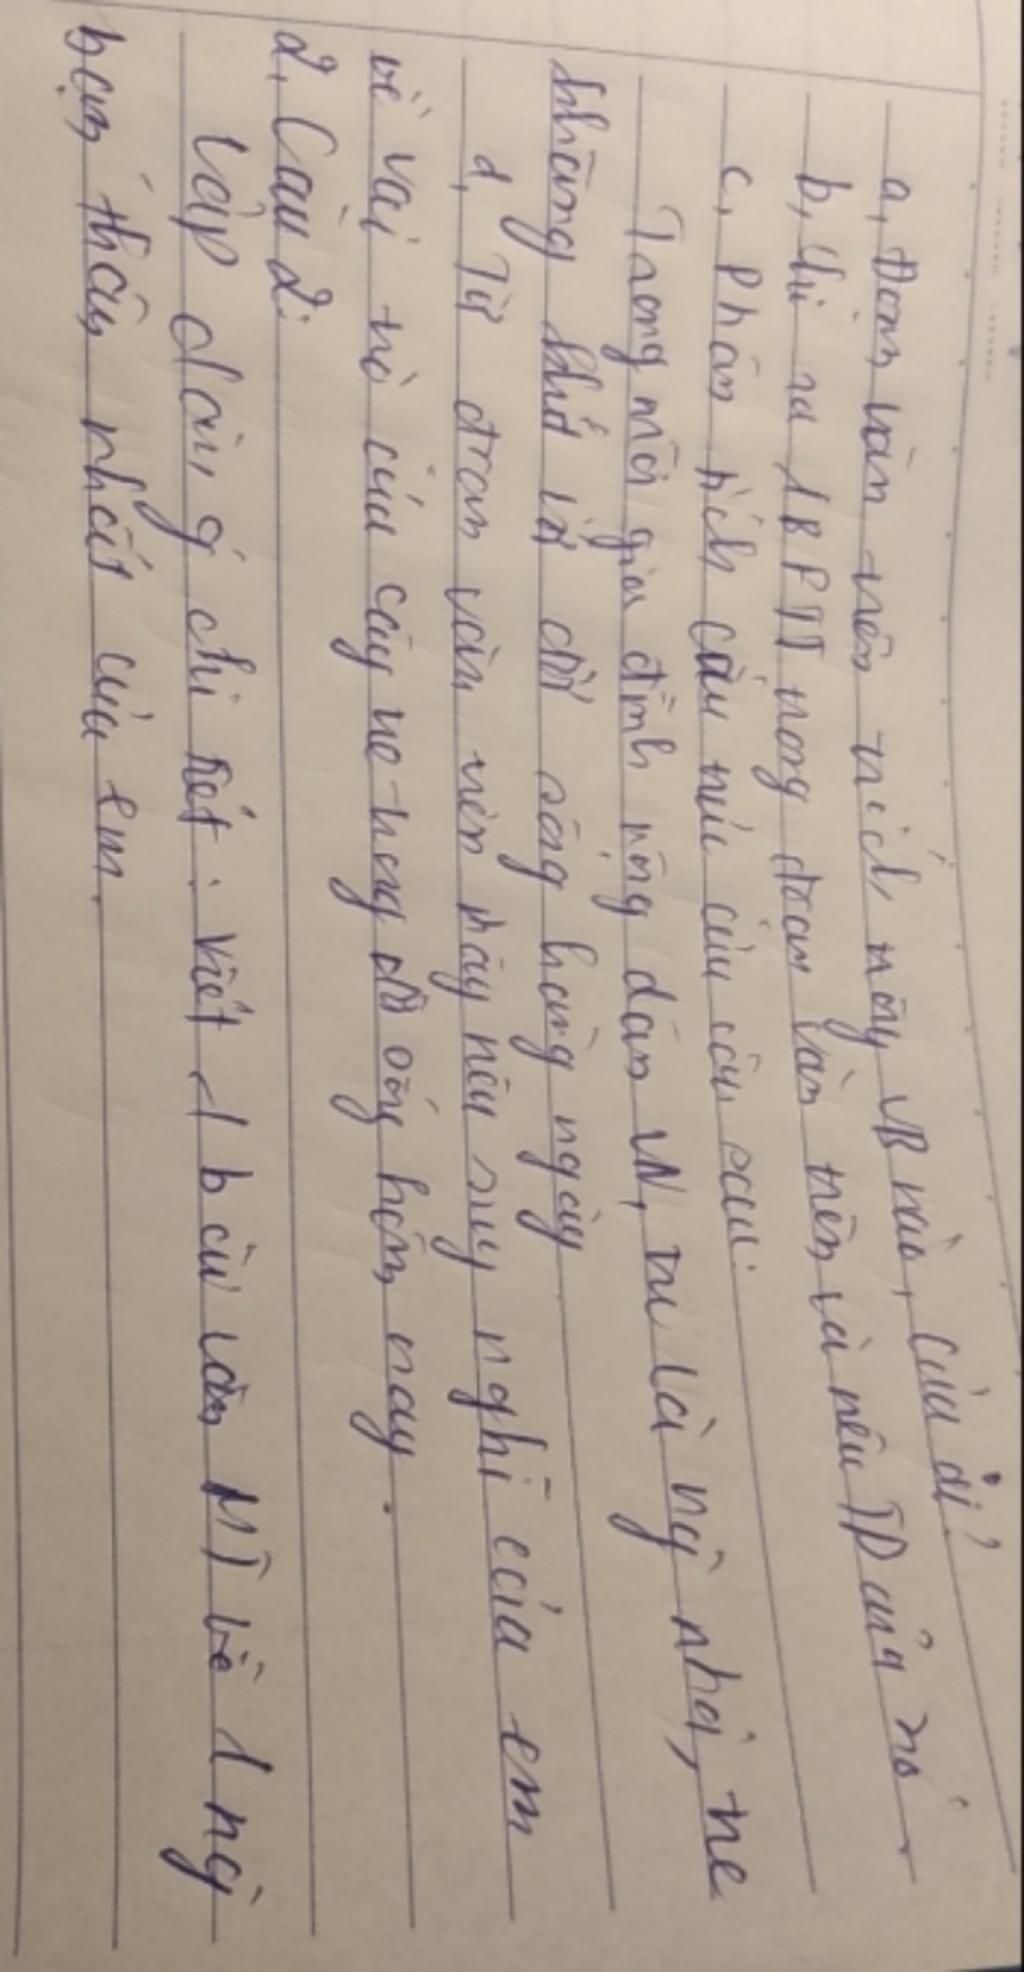 a, Đoạn văn trên trích trong VB nào, Của ai?
b, Chỉ ra 1 BPTT trong đoạn văn trên và nêu TD của nó
c, Phân tích cấu trúc của câu sau:
Trong mỗi gia đình nông dân VN, tre là ng nhà, tre
khăng khít với đời sống hàng ngày
d, Từ đoạn văn trên hãy nêu suy nghĩ của em
về vai trò của cây tre trong đời sống hôm nay.
2, Câu 2:
Lập dàn ý chi tiết: Viết 1 bài văn MT về 1 ng
bạn thân nhất của em.